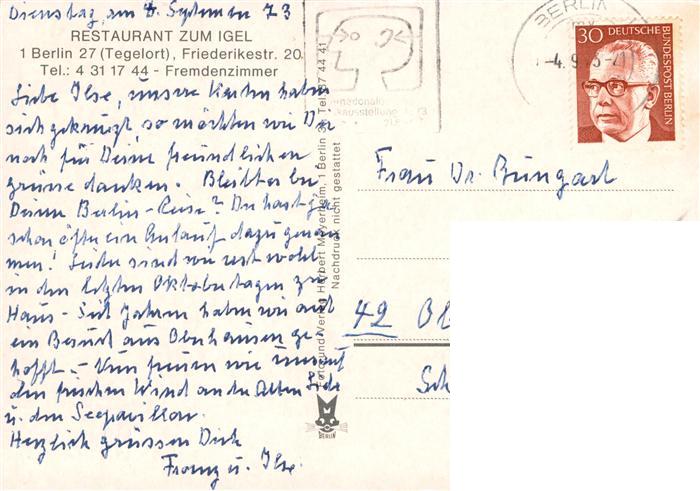 Dienstag am 4. September 73
RESTAURANT ZUM IGEL
1 Berlin 27 (Tegelort), Friederikestr. 20
Tel.: 4 31 17 44 - Fremdenzimmer
Liebe Ilse, unsere Karten haben
sich gekreuzt, so möchten wir Dir
noch für Deine freundlichen
Grüsse danken. Bleibt es bei
Deiner Berlin-Reise? Du hast ja
schon öfter ein Anlauf dazu genom
men! Leider sind wir erst wohl
in den letzten Oktobertagen zu
Haus - Seit Jahren haben wir auf
ein Besuch aus Oberhausen ge-
hofft. - Nun freuen wir uns auf
den frischen Wind an der Alten Liebe
u. den Seepavillon.
Herzlich grüssen Dich
Franz u. Ilse.
Foto und Verlag Herbert Meyerheim, 1 Berlin
Nachdruck nicht gestattet
BERLIN
BERLIN
-4.9.73-21
30 DEUTSCHE BUNDESPOST BERLIN
Frau Dr. Bungart
42 Ob
Sch